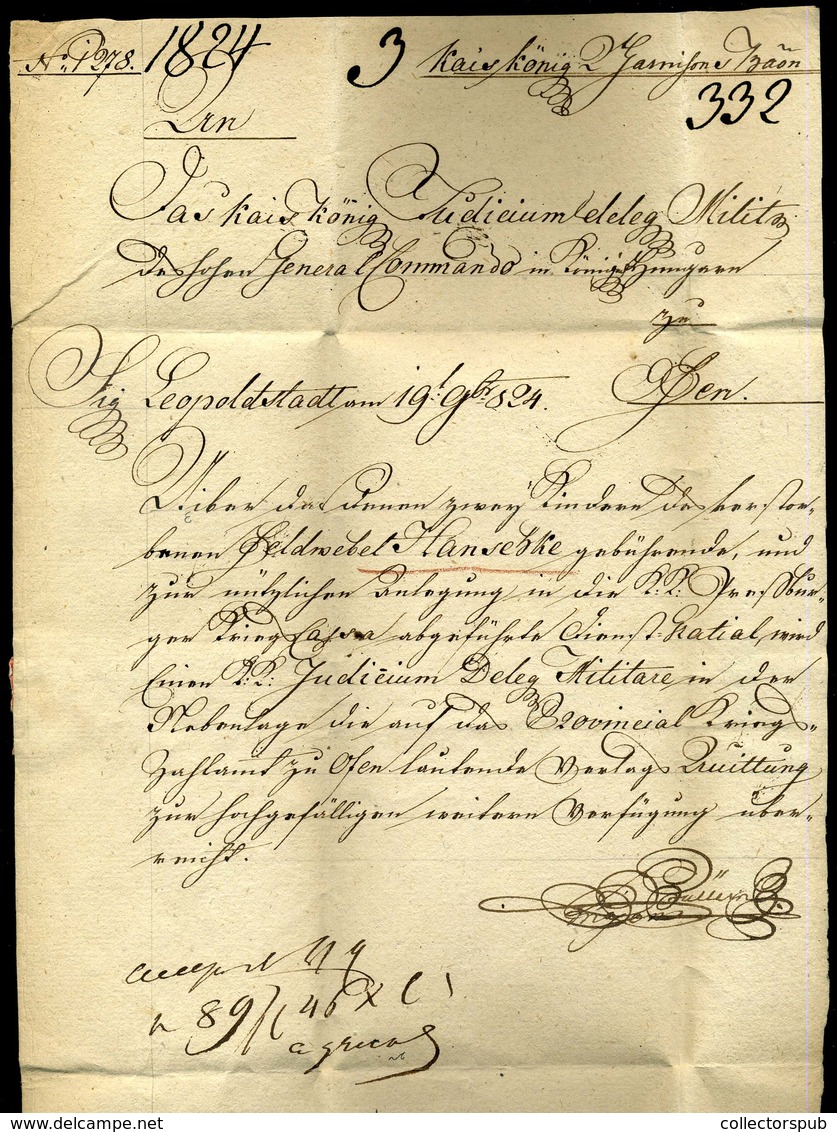 No: 1278. 1824 3 kais könig 2 Garnisons Baon
332
An
Das kais könig Judicium deleg Milit
des hohen General Commando in Königr Hungarn
zu
Sig Leopoldstadt am 19t. 9br 824. Ofen.
Uiber das denen zwey Kindern des verstor-
benen Feldwebel Hanschke gebührende, und
zur nützlichen Anlegung in die K: K: Pressbur-
ger Kriegs Cassa abgeführte Dienst-, wird
Einen K: K: Judicium Deleg Militare, in der
Nebenlage die auf das Provincial Kriegs-
Zahlamt zu Ofen lautende Verlags Quittung
zur hochgefälligen weitern Verfügung über-
reicht.
89 46 x
collectorspub